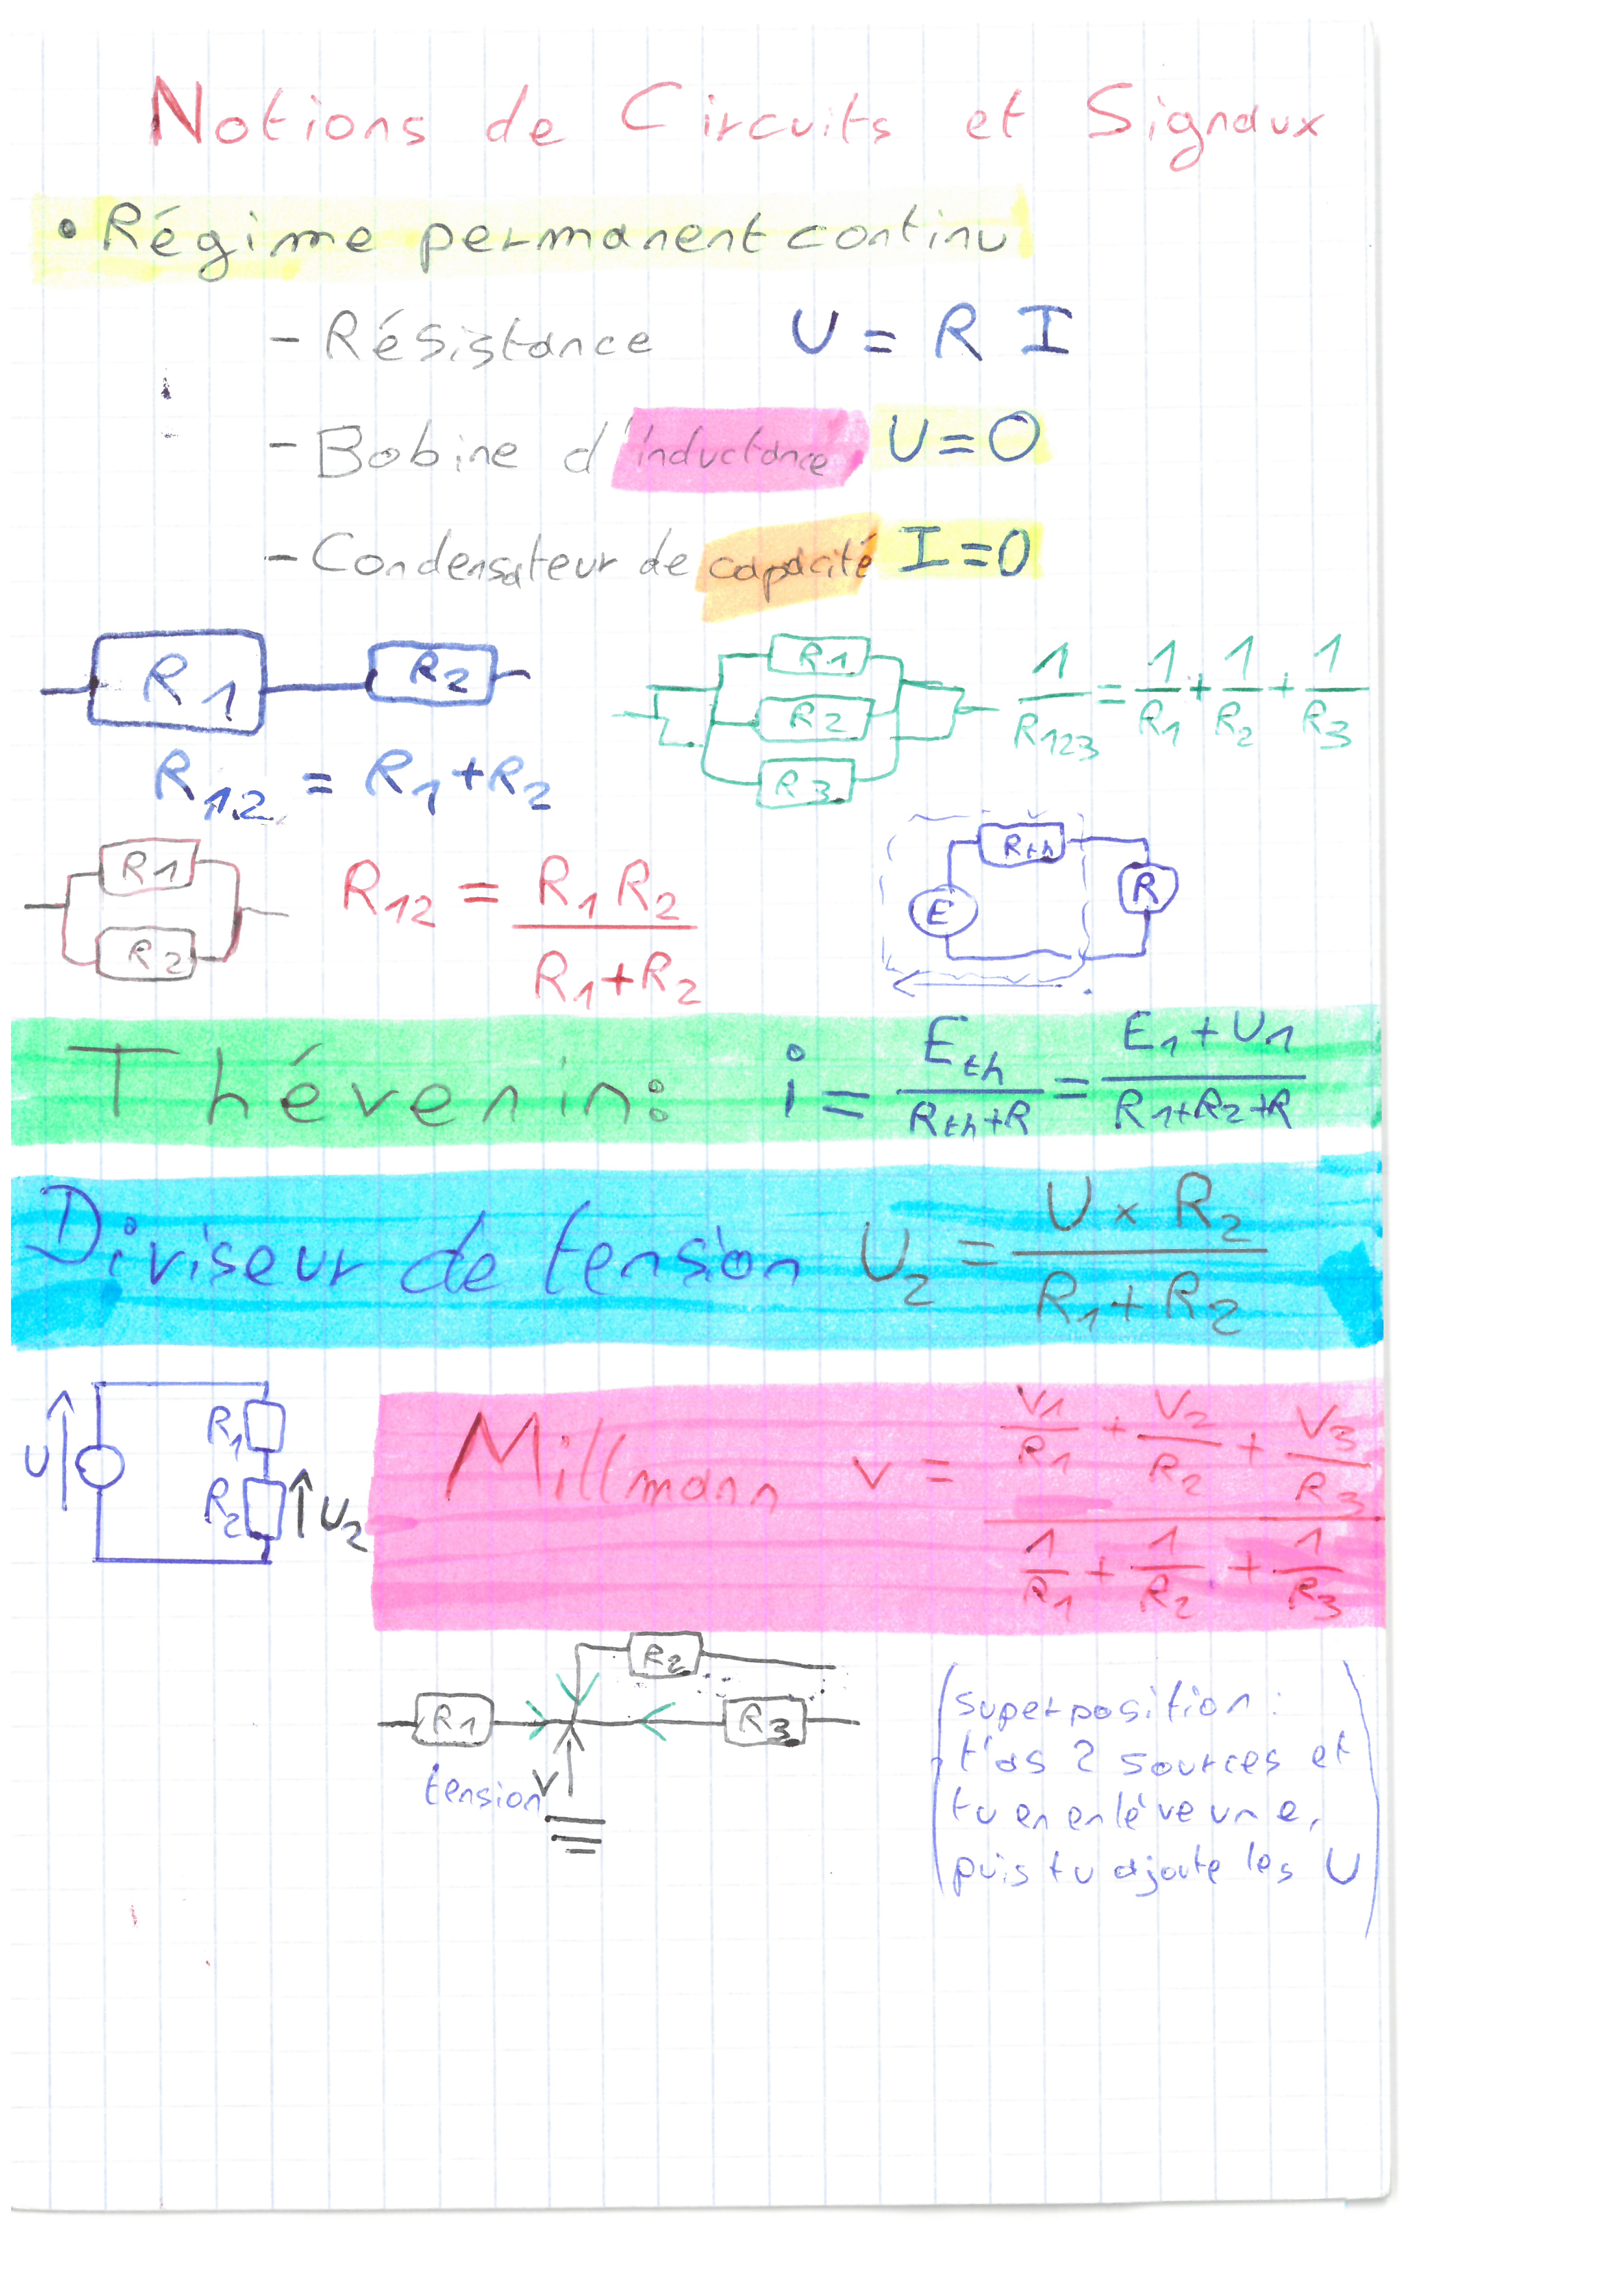 Notions de Circuits et Signaux
• Régime permanent continu
- Résistance U = R I
- Bobine d'inductance U = 0
- Condensateur de capacité I = 0
R1 R2
R12 = R1 + R2
R1
R2
R3
1/R123 = 1/R1 + 1/R2 + 1/R3
R1
R2
R12 = R1 R2 / R1 + R2
Rth
E
R
Thévenin : i = Eth / Rth + R = E1 + U1 / R1 + R2 + R
Diviseur de tension U2 = U × R2 / R1 + R2
U
R1
R2
U2
Millmann V = V1/R1 + V2/R2 + V3/R3 / 1/R1 + 1/R2 + 1/R3
R2
R1
R3
tension V
(superposition :
t'as 2 sources et
tu en enlève une,
puis tu ajoute les U)